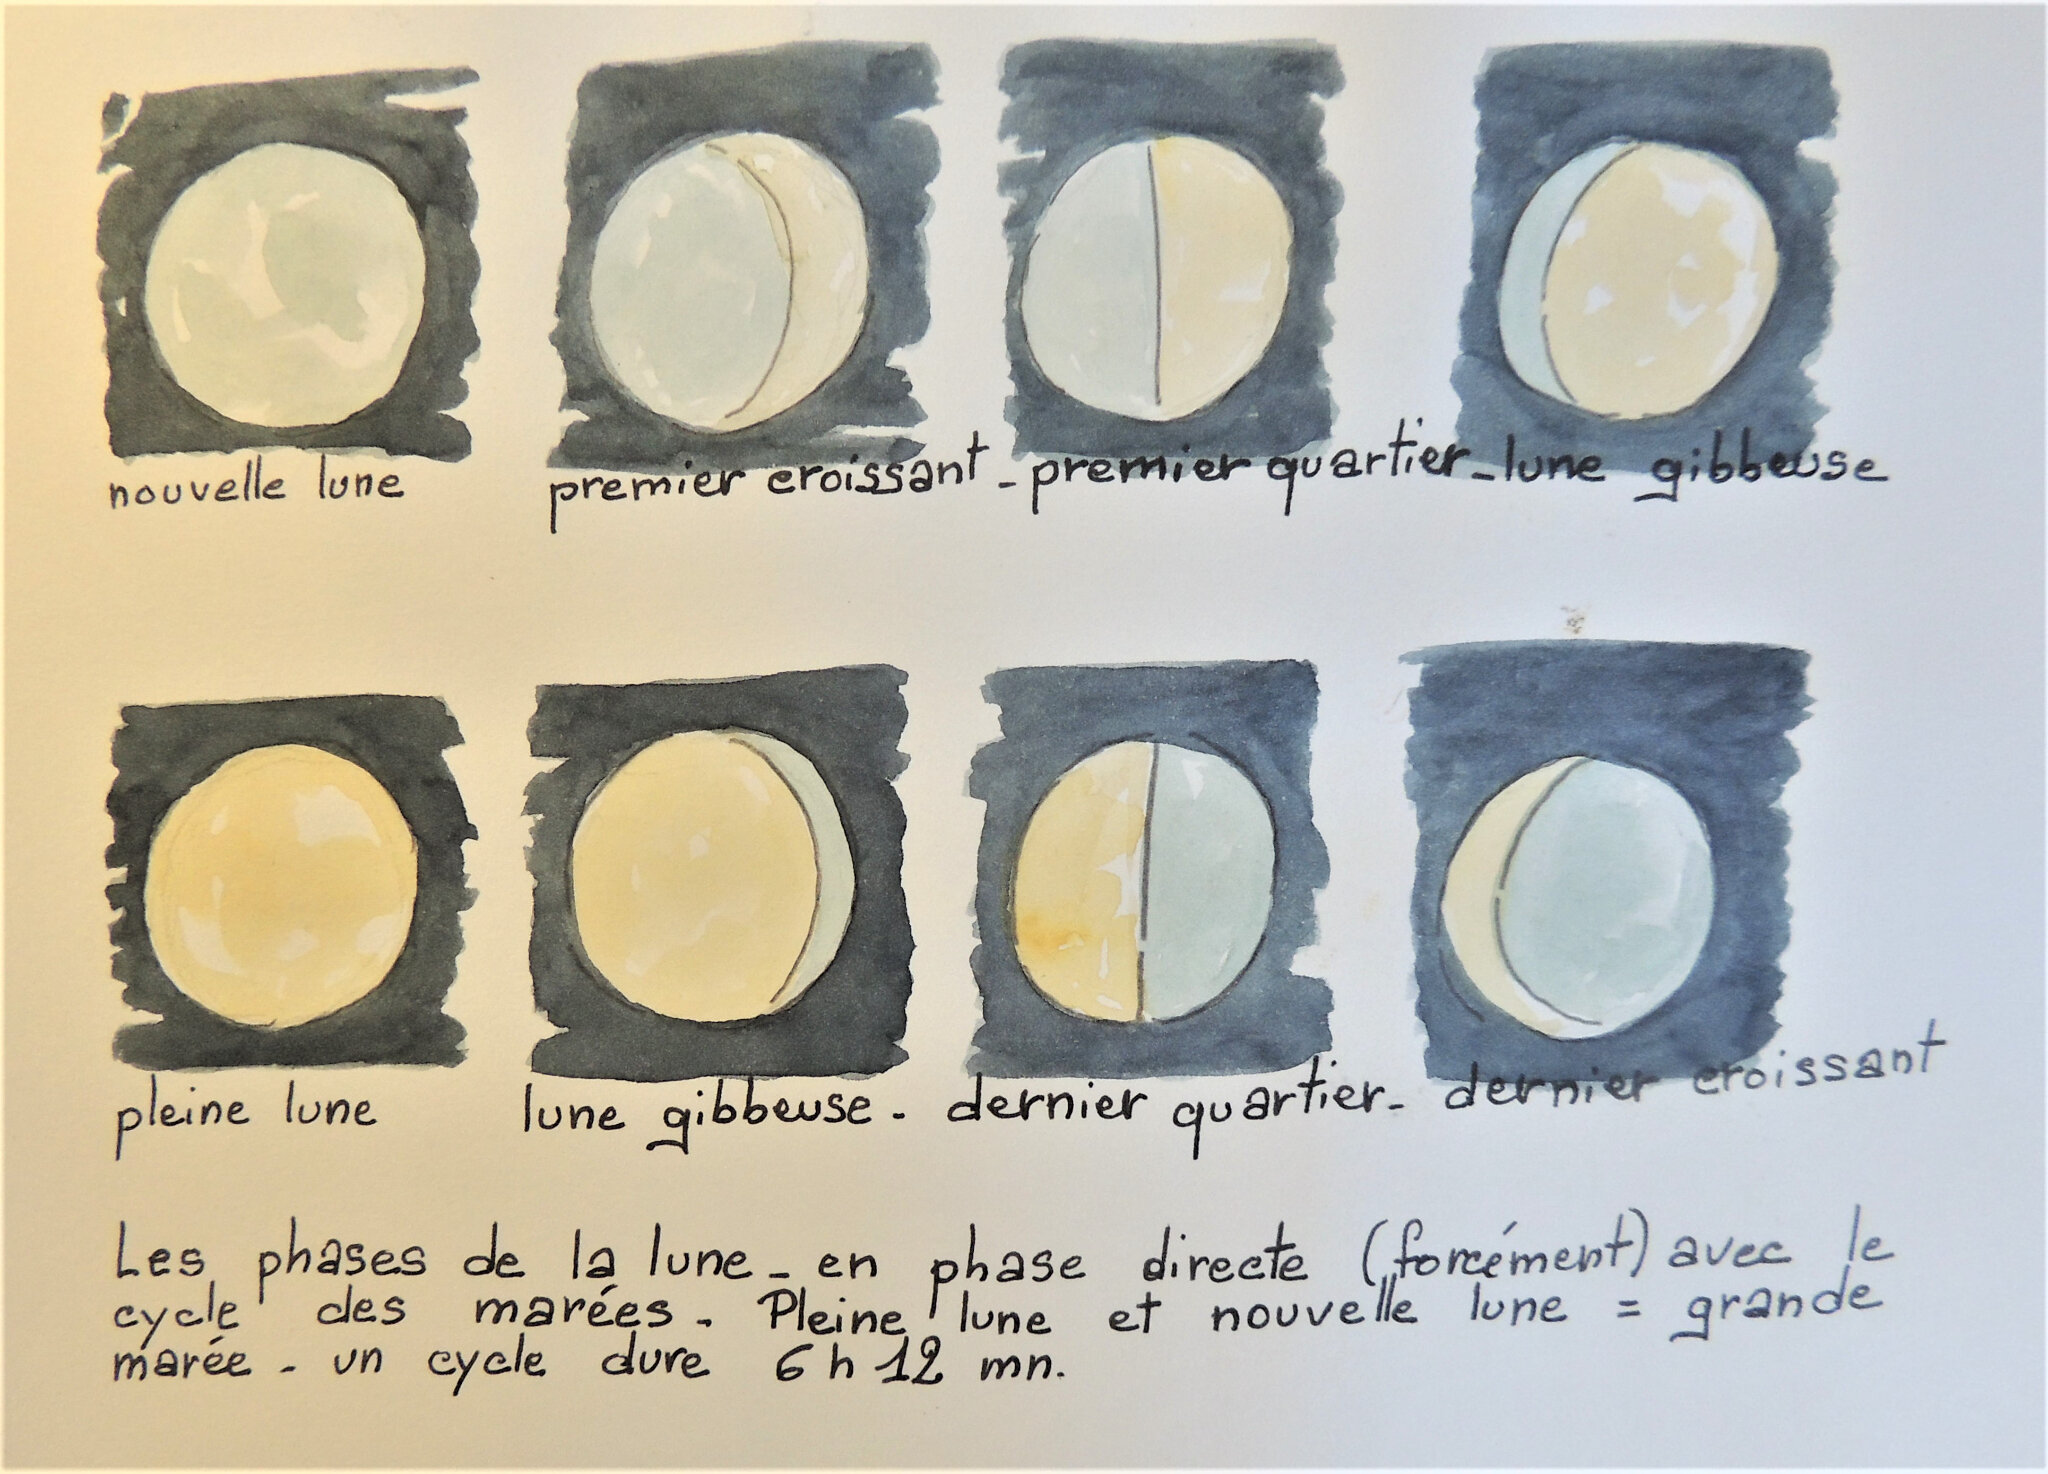 nouvelle lune premier croissant - premier quartier - lune gibbeuse
pleine lune lune gibbeuse - dernier quartier - dernier croissant
Les phases de la lune - en phase directe (forcément) avec le
cycle des marées - Pleine lune et nouvelle lune = grande
marée - un cycle dure 6 h 12 mn.